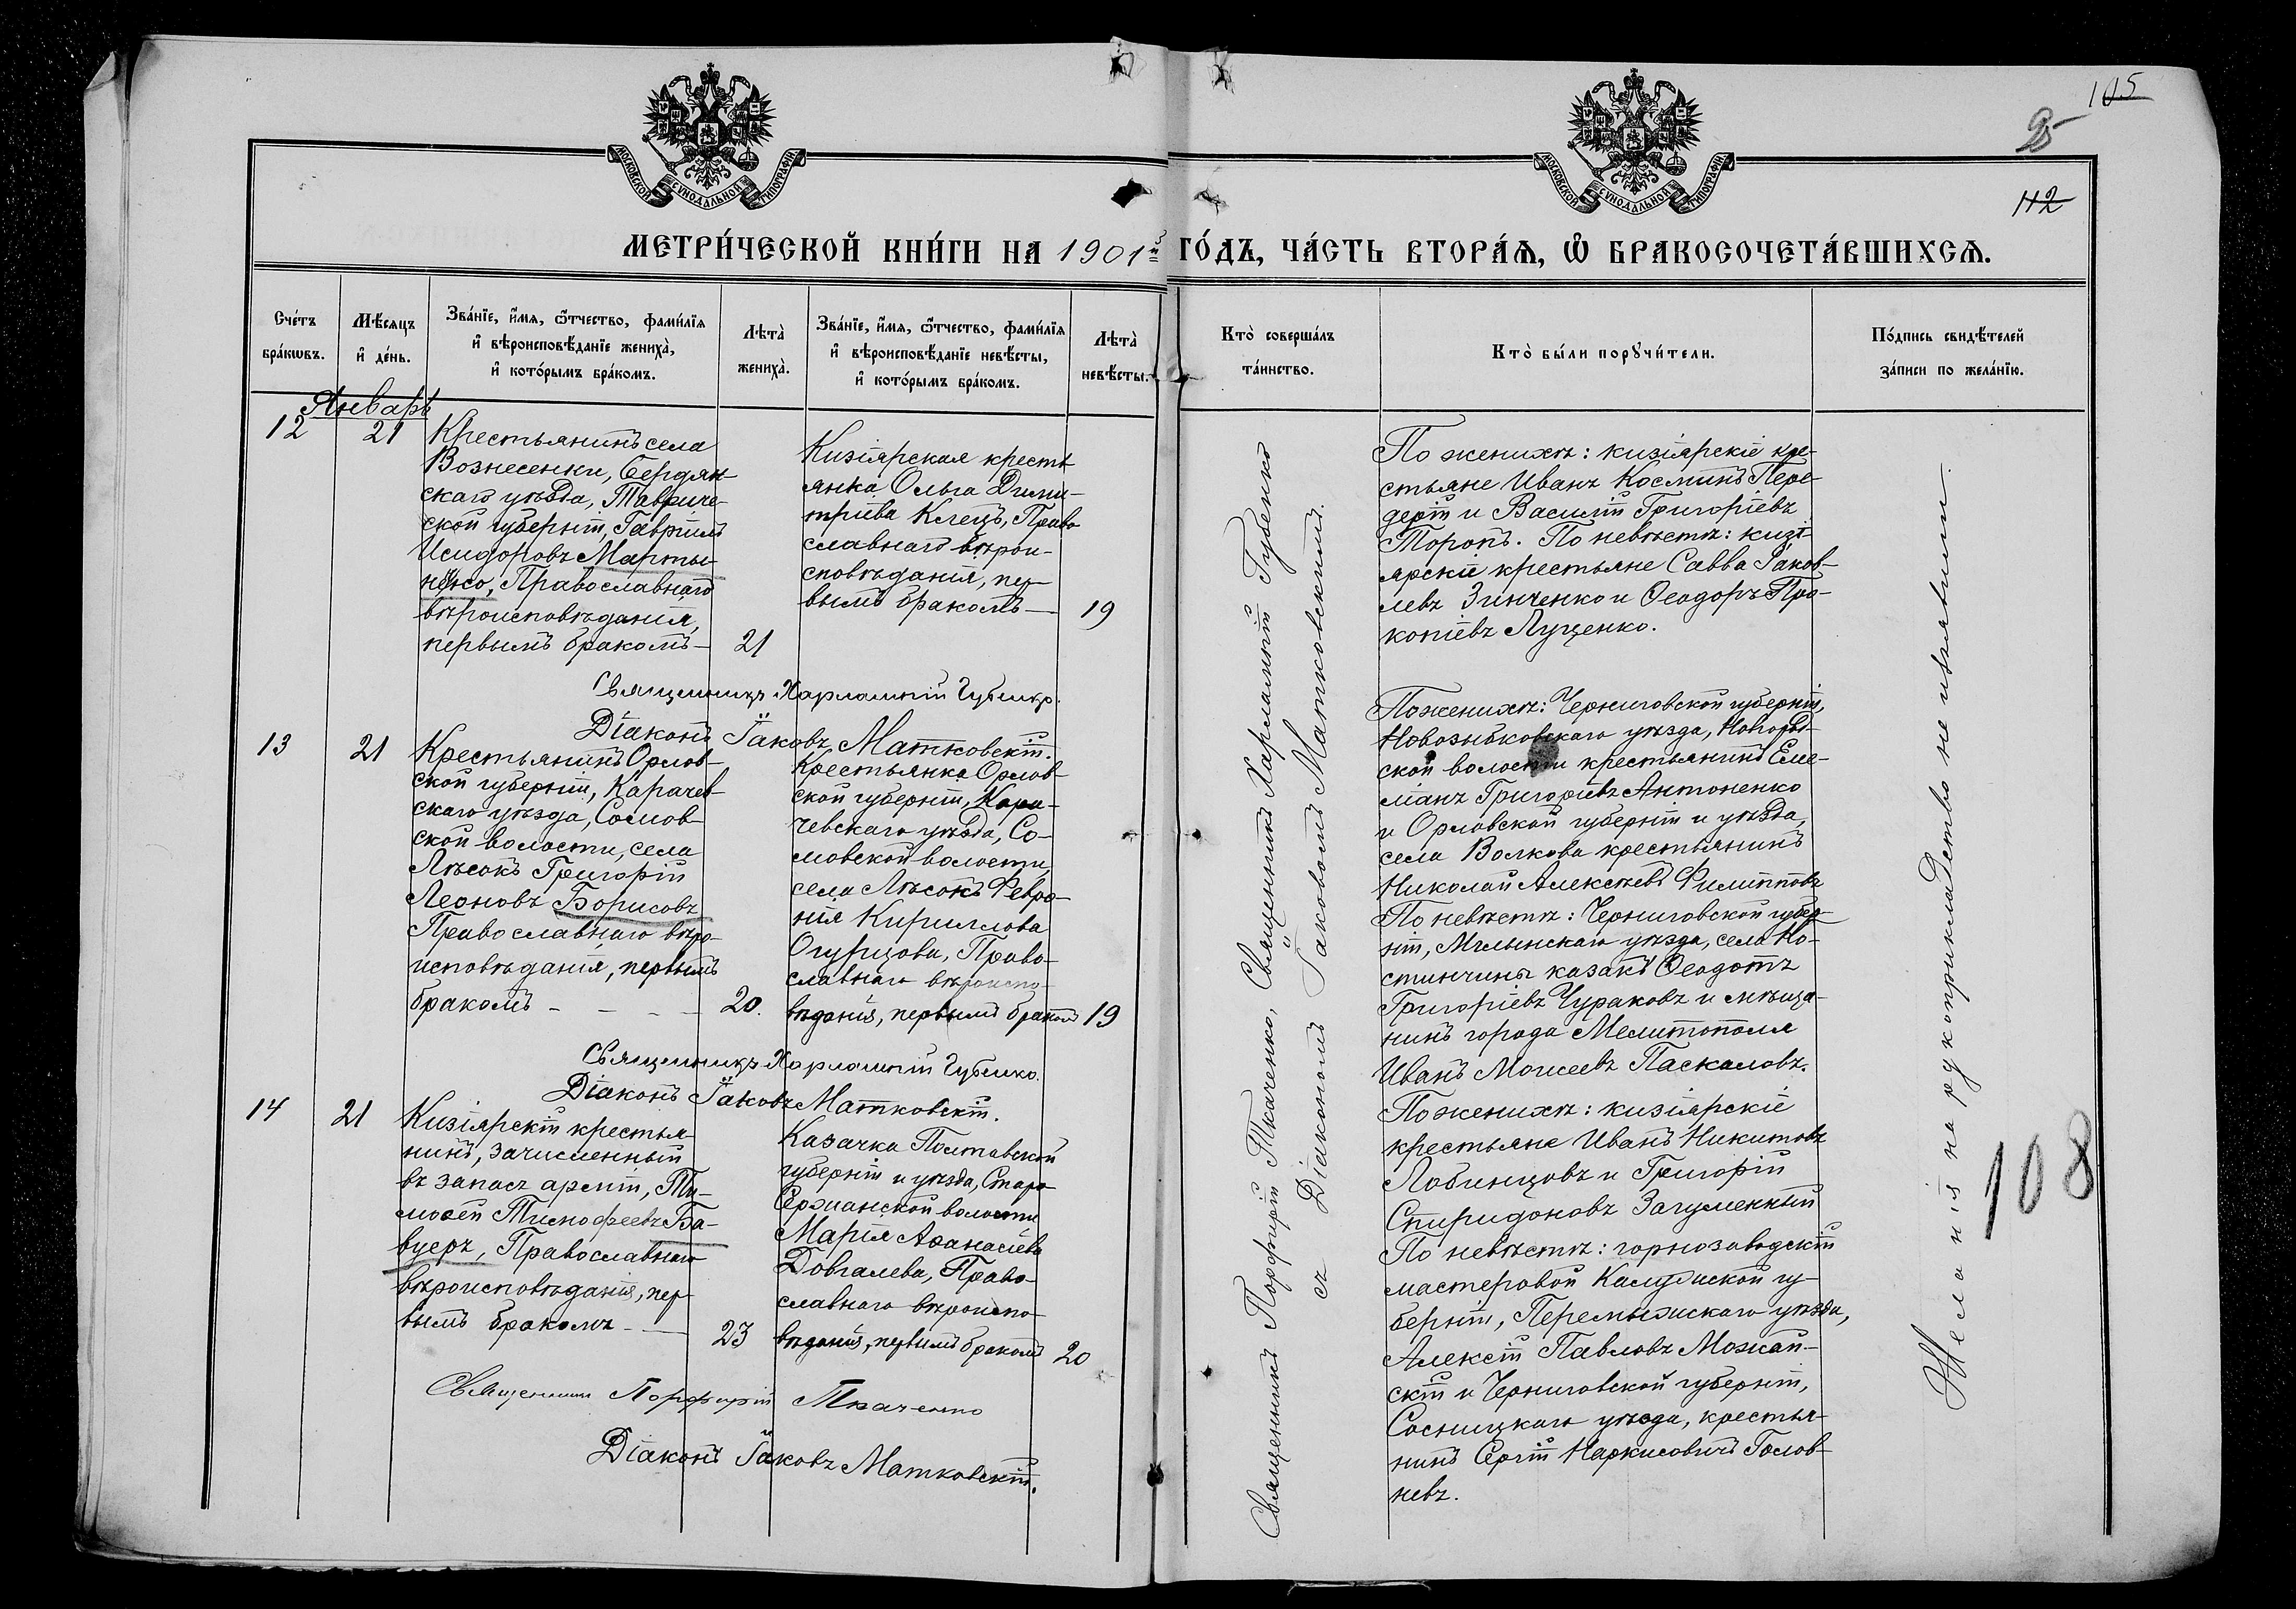 105
25
112
МОСКОВСКОЙ СѴНОДАЛЬНОЙ ТИПОГРАФІИ
МОСКОВСКОЙ СѴНОДАЛЬНОЙ ТИПОГРАФІИ
МЕТРИ́ЧЕСКОЙ КНИ́ГИ НА 1901й ГО́ДЪ, ЧА́СТЬ ВТОРА́Ѧ, Ѽ БРАКОСОЧЕТА́ВШИХСѦ.
Сче́тъ бра́кѡвъ.
Мѣ́сяцъ и҆ де́нь.
Зва́нїе, и҆́мѧ, ѻ҆́тчество, фами́лїѧ
и҆ вѣроисповѣ́данїе жениха̀,
и҆ кото́рымъ бра́комъ.
Лѣта̀ жениха̀.
Зва́нїе, и҆́мѧ, ѻ҆́тчество, фами́лїѧ
и҆ вѣроисповѣ́данїе невѣ́сты,
и҆ кото́рымъ бра́комъ.
Лѣта̀ невѣ́сты.
Кто̀ соверша́лъ та́инство.
Кто̀ бы́ли порꙋчи́тели.
По́дпись свидѣ́телей
за́писи по жела́нїю.
Январь
12
21
Крестьянинъ села
Вознесенки, Бердян-
скаго уѣзда, Тавриче-
ской губерніи, Гавріилъ
Исидоровъ Марты-
ненко, Православнаго
вѣроисповѣданія,
первымъ бракомъ —
21
Кизіярская кресть
янка Ольга Дими-
тріева Клецъ, Право
славнаго вѣрои-
сповѣданія, пер-
вымъ бракомъ —
19
По женихѣ: кизіярскіе кре-
стьяне Иванъ Косминъ Пере-
дерій и Василій Григоріевъ
Торопъ. По невѣстѣ: кизі-
ярскіе крестьяне Савва Іаков-
левъ Зинченко и Ѳеодоръ Про-
копіевъ Луценко.
Священникъ Харлампій Губенко.
Діаконъ Іаковъ Матковскій.
13
21
Крестьянинъ Орлов-
ской губерніи, Карачев-
скаго уѣзда, Сомов-
ской волости, села
Лѣсокъ Григорій
Леоновъ Борисовъ
Православнаго вѣро-
исповѣданія, первымъ
бракомъ - - - -
20.
Крестьянка Орлов-
ской губерніи, Кара-
чевскаго уѣзда, Со-
мовской волости,
села Лѣсокъ Февро-
нія Кириллова
Огурцова, Право-
славнаго вѣроиспо-
вѣданія, первымъ бракомъ
19
По женихѣ: Черниговской губерніи,
Новозыбковскаго уѣзда,
ской волости крестьянинъ Еме-
ліанъ Григоріевъ Антоненко
и Орловской губерніи и уѣзда,
села Волкова крестьянинъ
Николай Алексѣевъ Филипповъ
По невѣстѣ: Черниговской губер-
ніи, Мглынскаго уѣзда, села Ко-
стинчины казакъ Ѳеодотъ
Григоріевъ Чураковъ и мѣща-
нинъ города Мелитополя
Иванъ Моисеевъ Паскаловъ.
Священникъ Харлампій Губенко.
Діаконъ Іаковъ Матковскій.
14
21
Кизіярскій крестья-
нинъ, зачисленный
въ запасъ арміи, Ти-
моѳей Тимофеевъ Ба-
вуеръ, Православнаго
вѣроисповѣданія, пер-
вымъ бракомъ - —
23
Казачка Полтавской
губерніи и уѣзда, Старо-
Сержанской волости
Марія Аѳанасіева
Довгалева, Право-
славнаго вѣроиспо-
вѣданія, первымъ бракомъ
20
По женихѣ: кизіярскіе
крестьяне Иванъ Никитовъ
Лобинцовъ и Григорій
Спиридоновъ Загуменный
По невѣстѣ: горнозаводскій
мастеровой Калужской гу-
берніи, Перемышскаго уѣзда,
Алексій Павловъ Можай-
скій и Черниговской губерніи,
Сосницкаго уѣзда, крестья-
нинъ Сергій Наркисовичъ Голов-
невъ.
Священникъ Порфирій Ткаченко
Діаконъ Іаковъ Матковскій.
Священникъ Порфирій Ткаченко, Священникъ Харлампій Губенко
съ Діакономъ Іаковомъ Матковскимъ.
Желанія на рукоприкладство не изъявили.
108